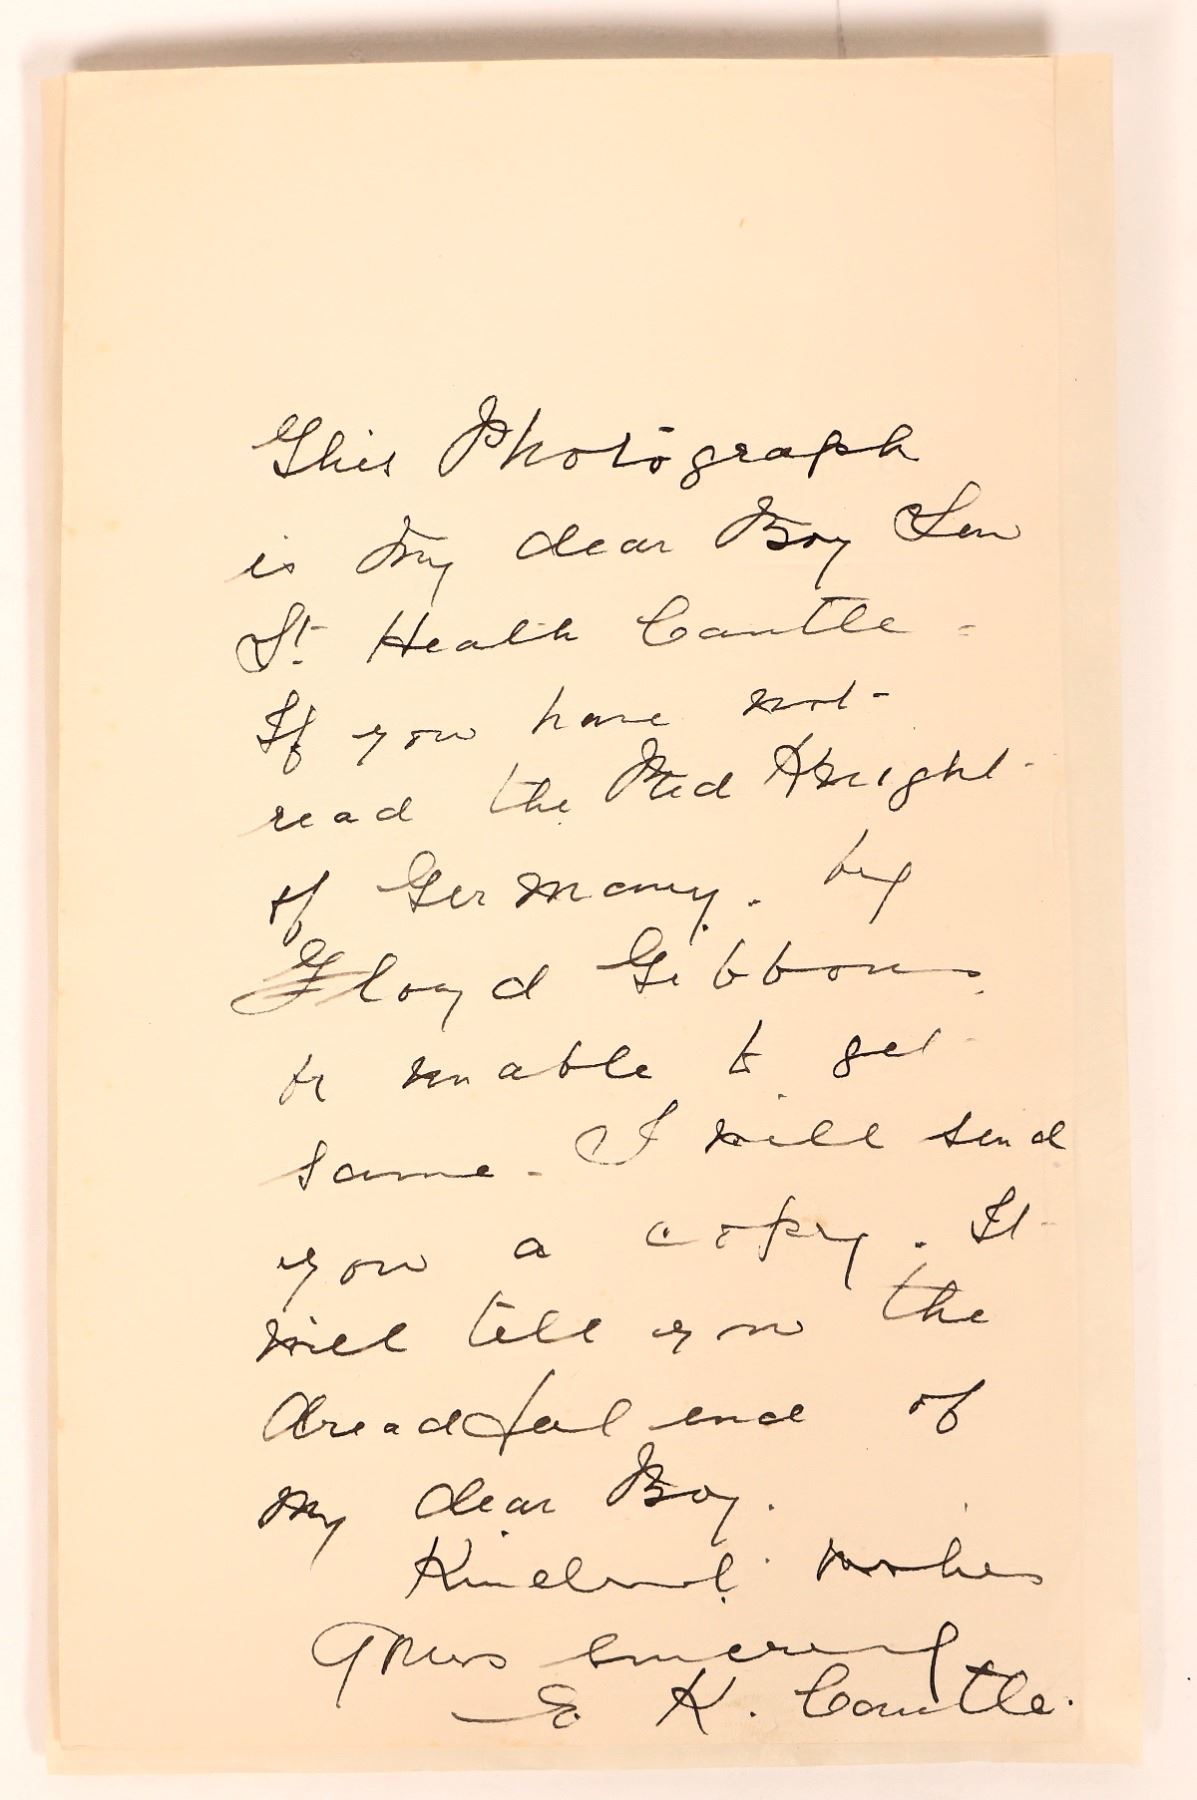 This Photograph
is My dear Boy Len
St. Heath Cantle -
If you have not
read the Red Knight
of Germany. by
Floyd Gibbons.
or unable to get
same - I will send
you a copy. It
will tell you the
dreadful end of
my dear Boy.
Kindest wishes
Yours sincerely
E K. Cantle.